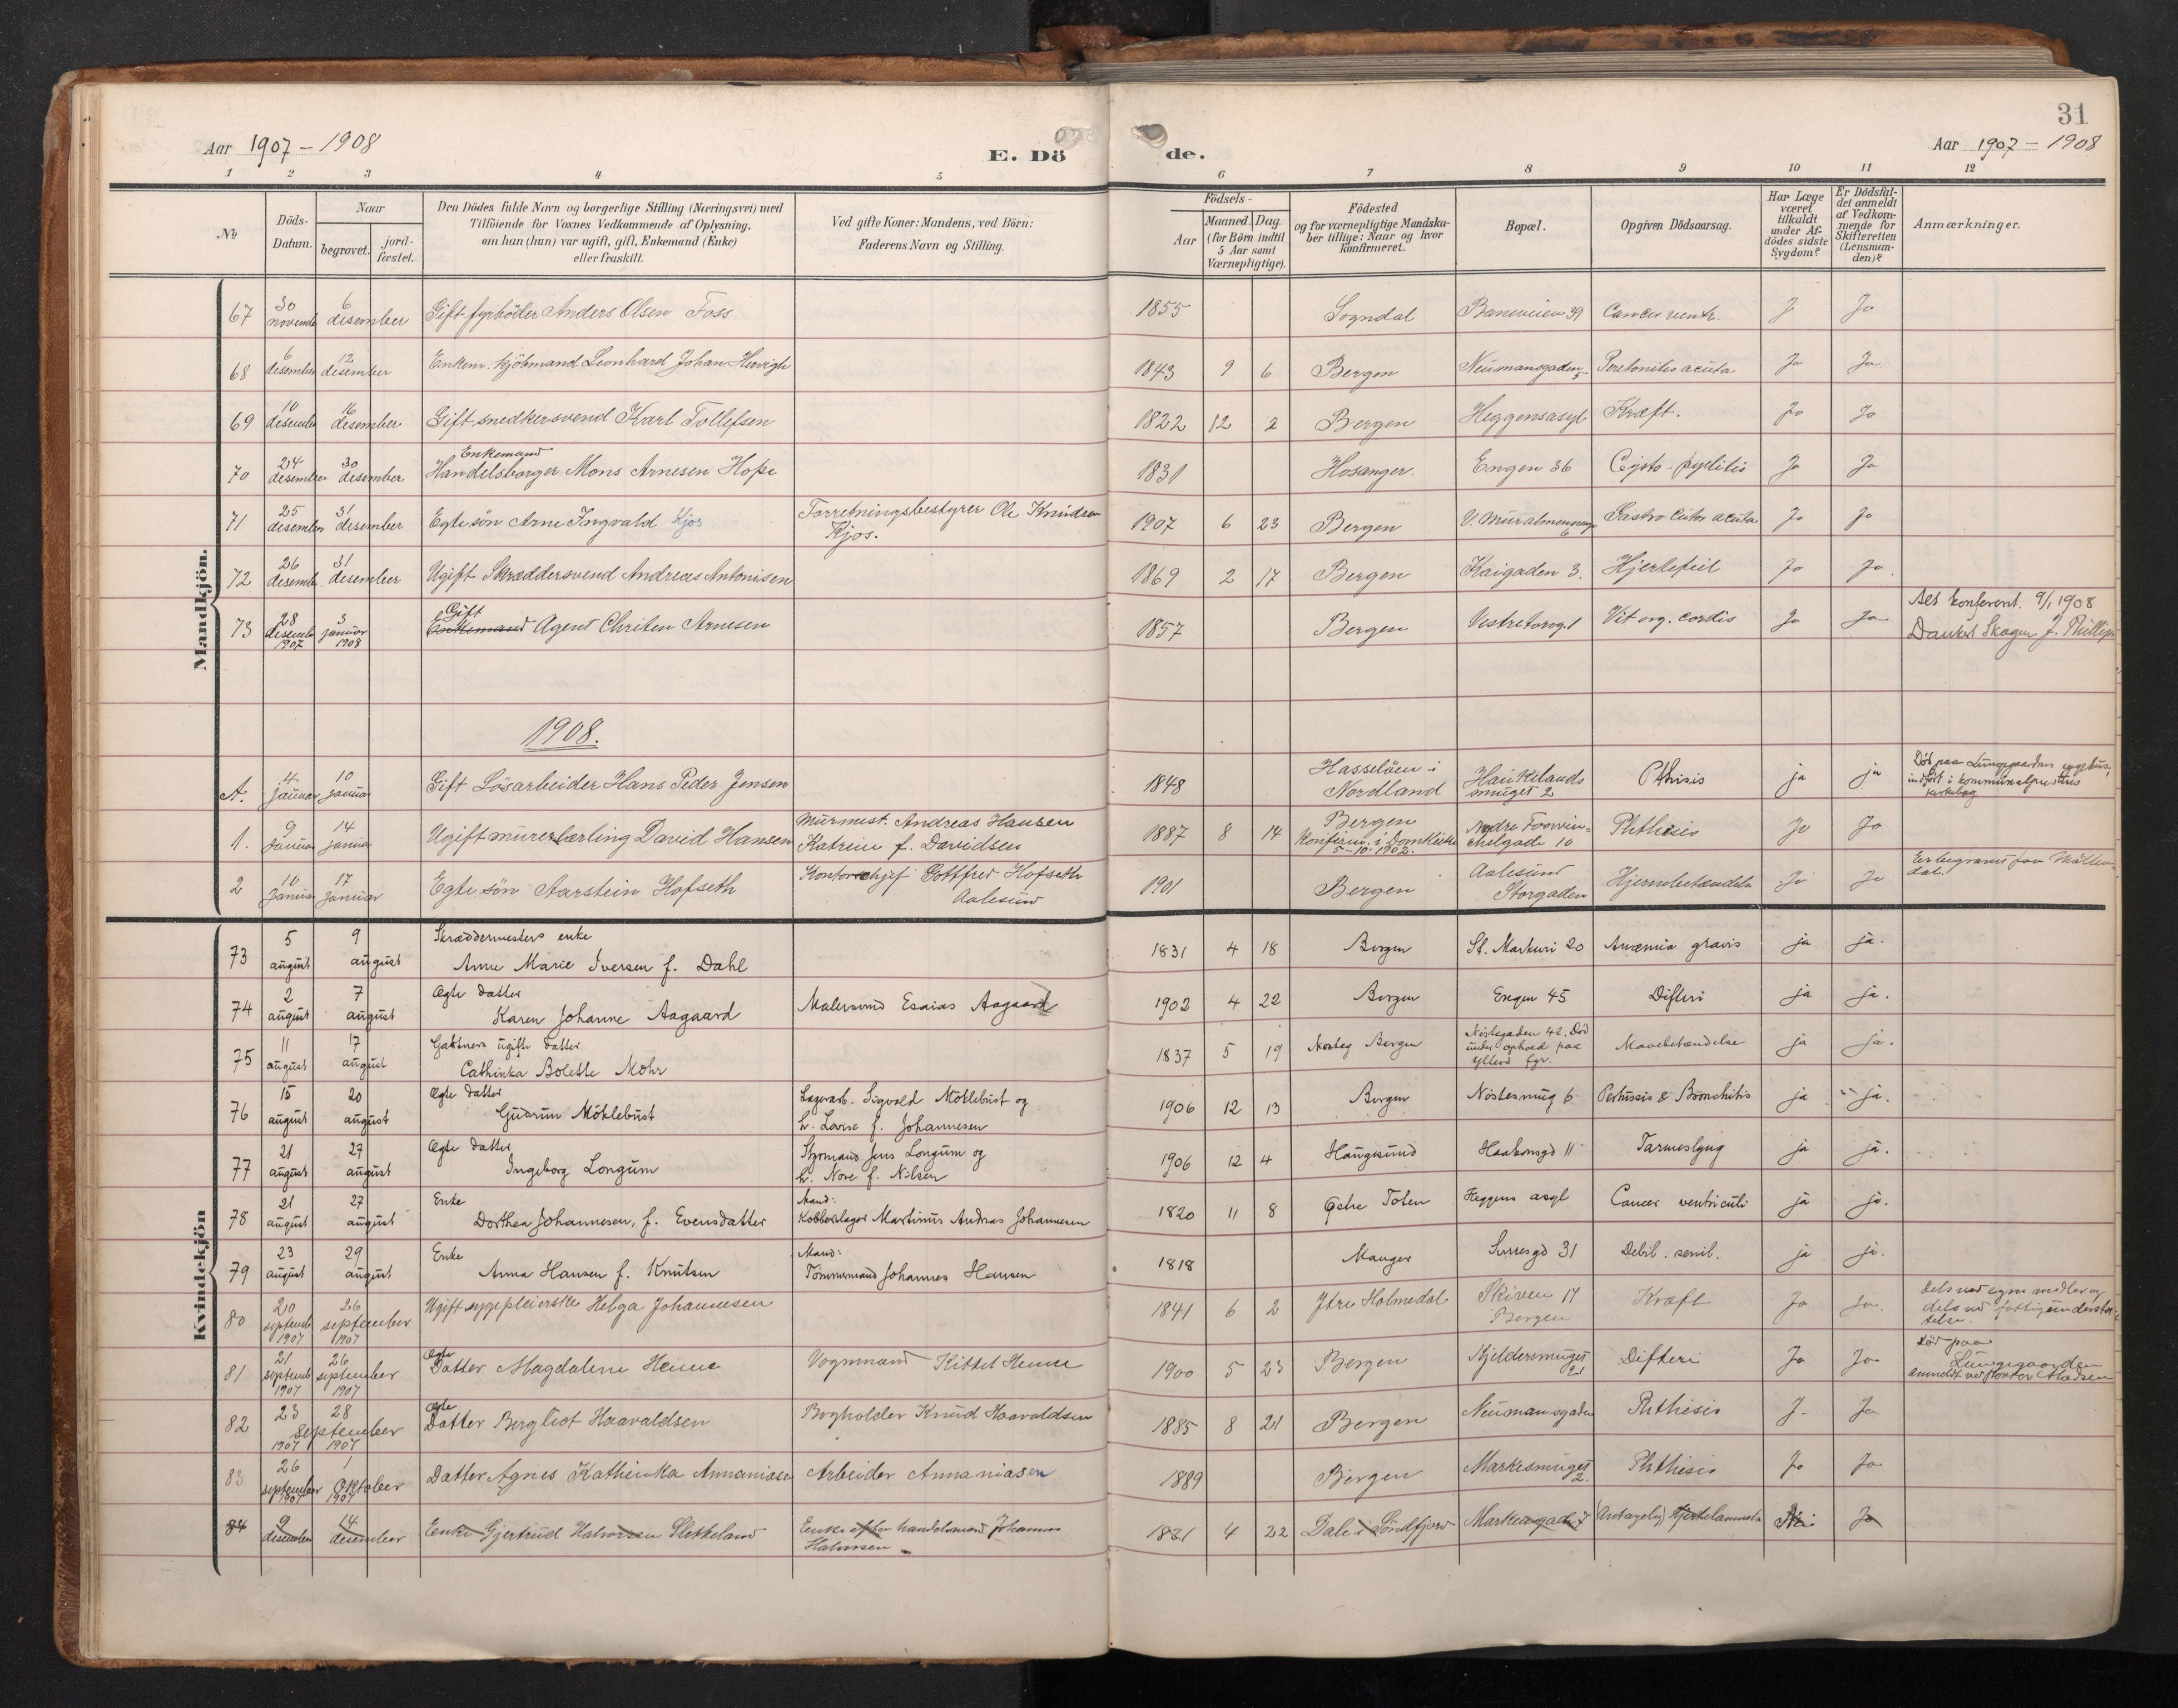 31
Aar 1907 - 1908
E. Dö
de.
Aar 1907 - 1908
1 2 3 4 5 6 7 8 9 10 11 12
№
Döds-
Datum.
Naar
begravet.
jord-
fæstet.
Den Dödes fulde Navn og borgerlige Stilling (Næringsvei) med
Tilföiende for Voxnes Vedkommende af Oplysning,
om han (hun) var ugift, gift, Enkemand (Enke)
eller fraskilt.
Ved gifte Koner: Mandens, ved Börn:
Faderens Navn og Stilling.
Födsels-
Aar
Maaned. Dag.
(for Börn indtil
5 Aar samt
Værnepligtige).
Födested
og for værnepligtige Mandska-
ber tillige: Naar og hvor
konfirmeret.
Bopæl.
Opgiven Dödsaarsag.
Har Læge
været
tilkaldt
under Af-
dödes sidste
Sygdom?
Er Dödsfal-
det anmeldt
af Vedkom-
mende for
Skifteretten
(Lensman-
den)?
Anmærkninger.
Mandkjön.
67 30 novemb 6 desember Gift fyrböder Anders Olsen Foss 1855 Sogndal Baneveien 39 Cancer ventr. J Ja
68 6 desember 12 desember Enkem. kjöbmand Leonhard Johan Hervigh 1843 9 6 Bergen Neumansgaden 5 Peretonites acuta Ja Ja
69 10 desember 16 desember Gift snedkersvend Karl Tollefsen 1822 12 2 Bergen Heggensasyl Kræft. Ja Ja
Enkemand
70 24 desember 30 desember Handelsborger Mons Arnesen Hope 1831 Hosanger. Engen 36 Cysto-pyelitis Ja Ja
71 25 desember 31 desember Egte sön Arne Ingvald Kjos Forretningsbestyrer Ole Knudsen 1907 6 23 Bergen V. Muralmenning 6 Gastro acuta Ja Ja
Kjos.
72 26 desemb 31 desember Ugift Skræddersvend Andreas Antonisen 1869 2 17 Bergen Kaigaden 3. Hjertefeil Ja Ja.
Gift
73 28 desemb 1907 3 januar 1908 Enkemand Agent Chriten Arnesen 1857 Bergen Vestretorvg. 1 Vit org. cordis Ja Ja
Als konferent. 9/1 1908
Dankert Skagen J.
1908.
A. 4 januar 10 januar Gift Lösarbeider Hans Peder Jensen 1848 Hasselöen i
Nordland Haukelands
smuget 2 Phthisis ja ja Död paa Lungegaardens sygehus,
indfört i kommunalprestens
kirkebog
1. 9 Januar 14 januar Ugift murerlærling David Hansen Murmest. Andreas Hansen
Katrine f. Davidsen 1887 8 14 Bergen
Konfirm. i Domkirke
5-10-1902. Nedre Foswin-
ckelgade 10 Phthisis Ja Ja
2 10 Januar 17 Januar Egte sön Aarstein Hofseth Kontorchef Gottfred Hofseth
Aalesund 1901 Bergen Aalesund
Storgaden Hjernebetændelse Ja Ja Er begravet paa Möllen-
dal.
Kvindekjön
73 5 august 9 august Skræddermesters enke
Anne Marie Iversen f. Dahl 1831 4 18 Bergen St. Markevei 20 Anæmia gravis ja ja.
74 2 august 7 august Ægte datter
Karen Johanne Aagaard Malersvend Esaias Aagaard 1902 4 22 Bergen Engen 45 Difteri ja ja.
75 11 august 17 august Gartners ugifte datter
Cathinka Bolette Mohr 1837 5 19 Bergen Nöstegaden 42. Död
under ophold paa
Ytterö Mavebetændelse ja ja.
76 15 august 20 august Ægte datter
Gudrun Möklebust Lagerarb. Sigvald Möklebust og
h. Lovise f. Johannesen 1906 12 13 Bergen Nöstesmug 6 Pertussis & Bronchitis ja ja.
77 21 august 27 august Ægte datter
Ingeborg Longum Styrmand Jens Longum og
h. Nore f. Nilsen 1906 12 4 Haugesund Haakonsgd 11 Tarmeslyng ja ja.
78 21 august 27 august Enke
Dorthea Johannesen, f. Evensdatter Mand:
Kobberslager Martinus Andreas Johannesen 1820 11 8 Östre Toten Heggens asyl Cancer ventriculi ja ja.
79 23 august 29 august Enke
Anna Hansen f. Knutsen Mand:
Tömmermand Johannes Hansen 1818 Manger 31 Debil. senil. ja ja.
80 20 septemb 1907 26 september 1907 Ugift sygepleierske Helga Johannesen 1841 6 2 Ytre Holmedal Skiven 17
Bergen Kræft Ja Ja. Dels ved egne midler og
dels ved fattigunderstöt-
telse.
Ægte
81 21 septemb 1907 26 september 1907 Datter Magdalene Heime Vognmand Kittel Heime 1900 5 23 Bergen Kjeldersmuget
21 Difteri Ja Ja Död paa
Lungegaarden
anmeldt ved Pastor Madsen
Ægte
82 23 1907 28 September 1907 Datter Bergliot Haavaldsen Bogholder Knud Haavaldsen 1885 8 21 Bergen Neumansgaden Phthisis J. Ja
83 26 september 1907 1 Oktober 1907 Datter Agnes Kathinka Annaniasen Arbeider Annaniasen 1889 Bergen Markesmuget
2. Phthisis Ja Ja
84 9 desember 14 desember Enke Gjertrud Halvorsen Sletteland Enke efter handelsmand Johannes
Halvorsen 1821 4 22 Dale i Söndfjord Markengaden 7 (Antagelig) Hjertelammelse Nei Ja